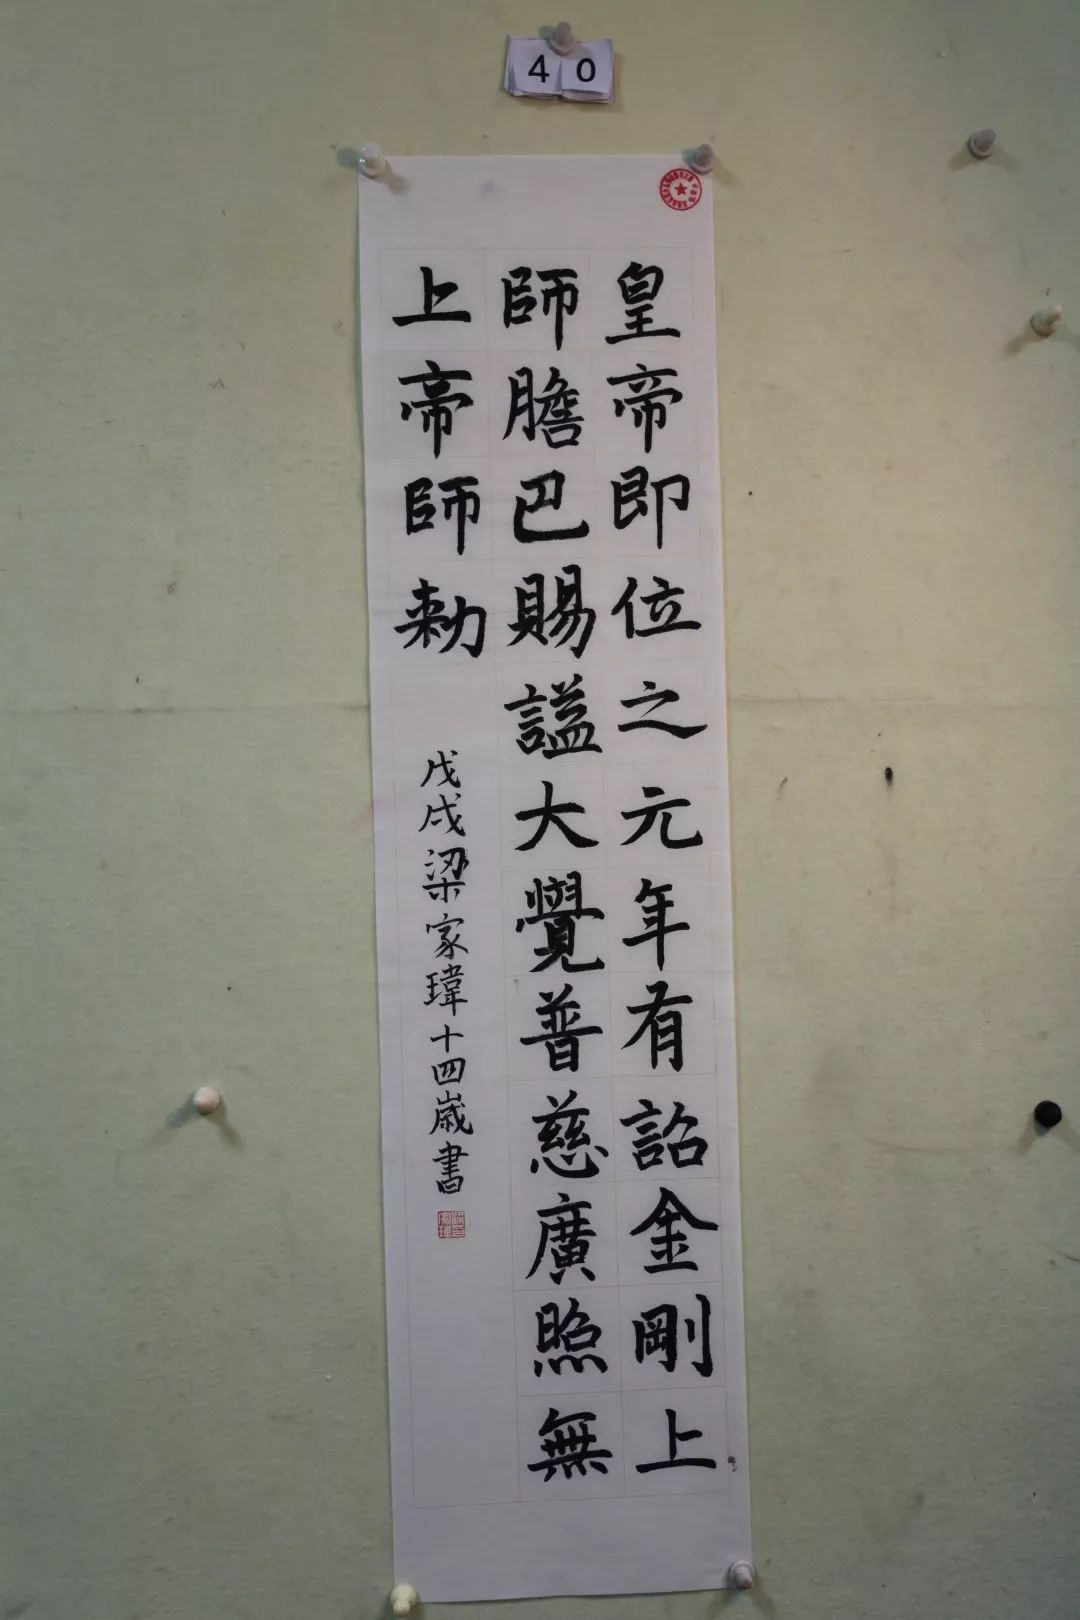 40
皇帝即位之元年有詔金剛上
師膽巴賜謚大覺普慈廣照無
上帝師勅
戊戌梁家瑋十四歲書